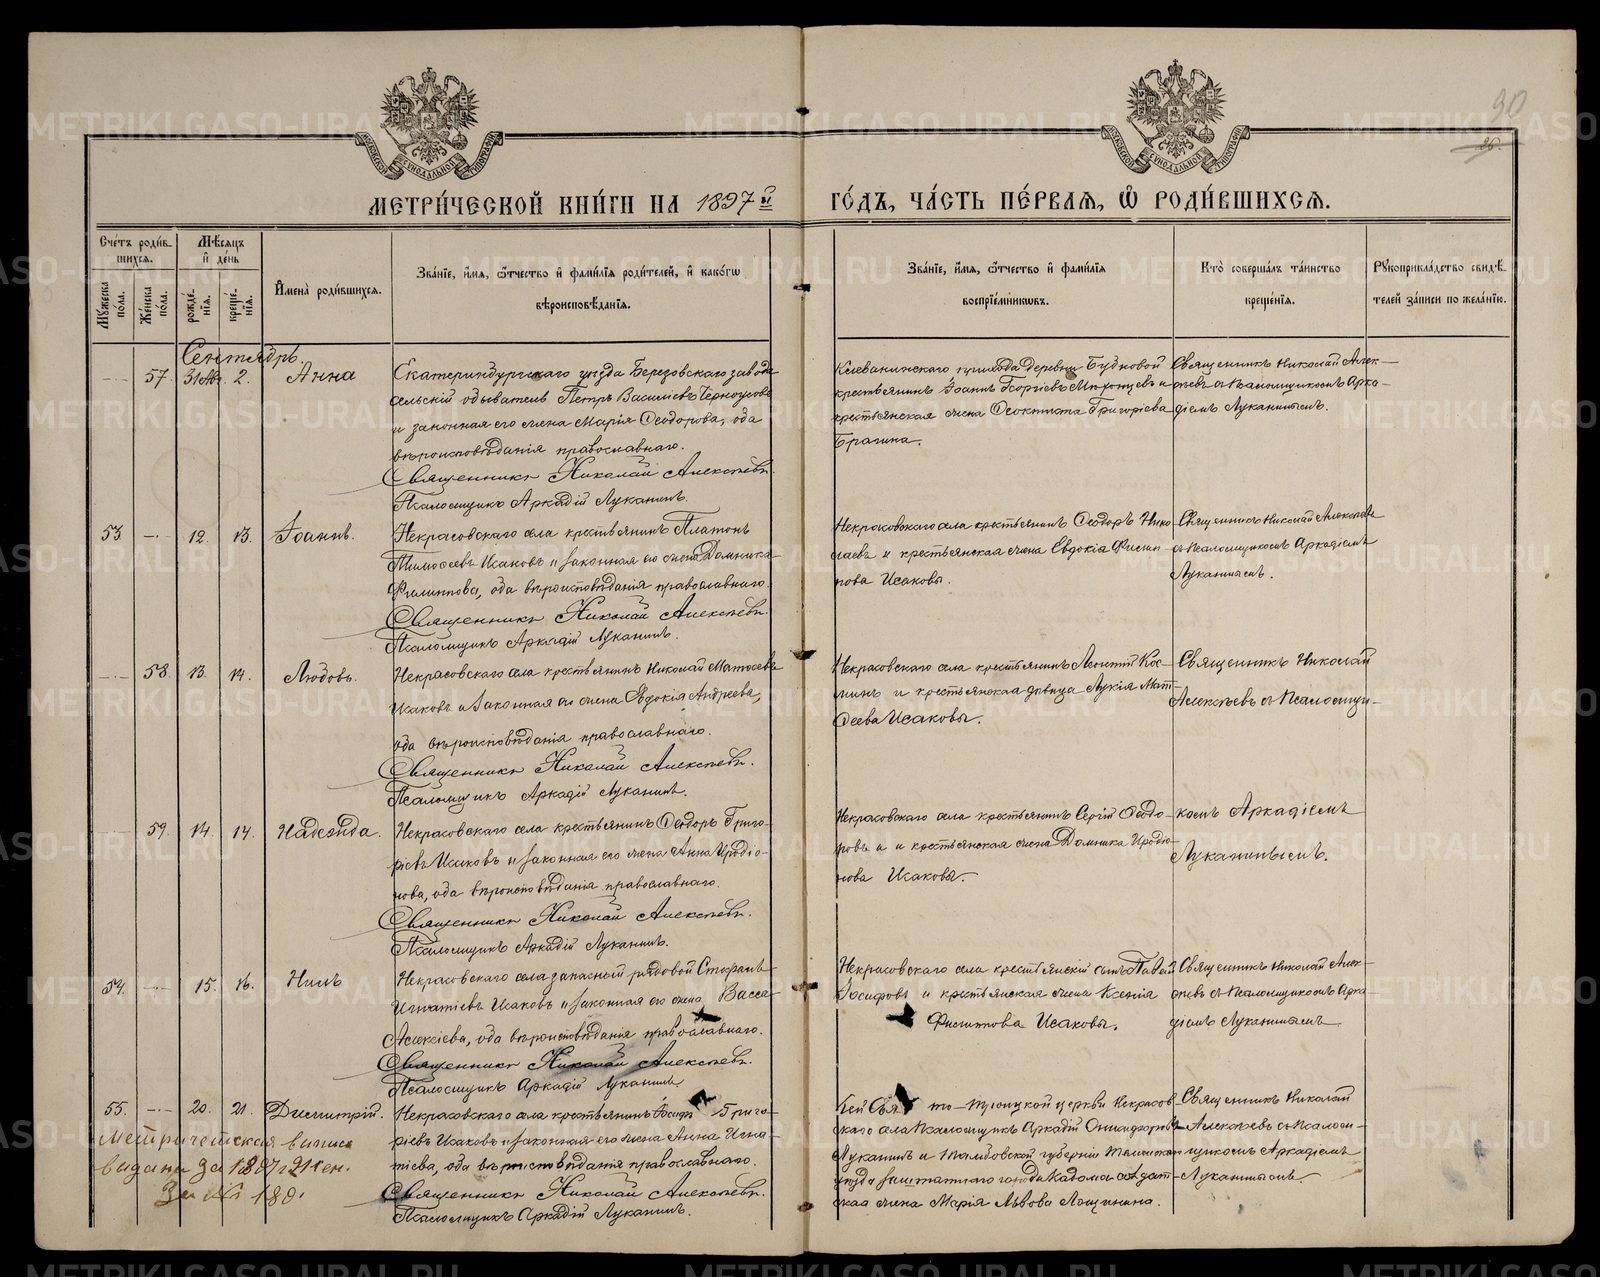 90
26.
МЕТРИ́ЧЕСКОЙ КНИ́ГИ НА 1897 й
ГО́ДЪ, ЧА́СТЬ ПЕ́РВАЯ, Ѿ РОДИ́ВШИХСЯ.
Сче́тъ роди́в-
шихся.
Мѣ́сяцъ
и҆ де́нь
Мꙋ́жеска по́ла.
Же́нска по́ла.
рожде́-нїя.
креще́-нїя.
И҆мена̀ роди́вшихся.
Зва́нїе, и҆́мя, ѻ҆́тчество и҆ фами́лїя роди́телей, и҆ како́гѡ
вѣроисповѣ́данїя.
Зва́нїе, и҆́мя, ѻ҆́тчество и҆ фами́лїя
воспрїе́мниковъ.
Кто̀ соверша́лъ та́инство
креще́нїя.
Рꙋкоприкла́дство свидѣ́-
телей за́писи по жела́нїю.
Сентябрь.
57. 31 Авг. 2. Анна
Екатеринбургскаго уѣзда Березовскаго завода
сельскій обыватель Петръ Василіевъ Черноусовъ
и законная его жена Марія Ѳеодорова, оба
вѣроисповѣданія православнаго.
Священникъ Николай Алексѣевъ.
Псаломщикъ Аркадій Луканинъ.
Клеванинскаго прихода деревни Будковой
крестьянинъ Іоаннъ Георгіевъ и
крестьянская жена Ѳеоктиста Григоріева
Брагина.
Священникъ Николай Алек-
сѣевъ съ Псаломщикомъ Арка-
діемъ Луканинымъ.
53 12. 13. Іоаннъ.
Некрасовскаго села крестьянинъ Платонъ
Тимоѳеевъ Исаковъ и законная его жена Домника
Филиппова, оба вѣроисповѣданія православнаго.
Священникъ Николай Алексѣевъ.
Псаломщикъ Аркадій Луканинъ.
Некрасовскаго села крестьянинъ Ѳеодоръ Нико-
лаевъ и крестьянская жена Евдокія Филип-
пова Исаковы.
Священникъ Николай Алексѣевъ
съ Псаломщикомъ Аркадіемъ
Луканинымъ.
58. 13. 14. Любовь.
Некрасовскаго села крестьянинъ Николай Матѳеевъ
Исаковъ и законная его жена Евдокія Андреева,
оба вѣроисповѣданія православнаго.
Священникъ Николай Алексѣевъ.
Псаломщикъ Аркадій Луканинъ.
Некрасовскаго села крестьянинъ Леонтій Кос-
минъ и крестьянская дѣвица Лукія Мат-
ѳеева Исаковы.
Священникъ Николай
Алексѣевъ съ Псаломщи-
59. 14. 14. Надежда.
Некрасовскаго села крестьянинъ Ѳеодоръ Григо-
ріевъ Исаковъ и законная его жена Анна Иродіо-
нова, оба вѣроисповѣданія православнаго.
Священникъ Николай Алексѣевъ.
Псаломщикъ Аркадій Луканинъ.
Некрасовскаго села крестьянинъ Сергій Ѳеодо-
ровъ и крестьянская жена Домника Иродіо-
нова Исаковы.
комъ Аркадіемъ
Луканинымъ.
54. 15. 16. Нилъ
Некрасовскаго села запасный рядовой Стефанъ
Игнатіевъ Исаковъ и законная его жена Васса
Алексіева, оба вѣроисповѣданія православнаго.
Священникъ Николай Алексѣевъ.
Псаломщикъ Аркадій Луканинъ.
Некрасовскаго села крестьянскій сынъ Павелъ
Іосифовъ и крестьянская жена Ксенія
Филиппова Исаковы.
Священникъ Николай Алек-
сѣевъ съ Псаломщикомъ Арка-
діемъ Луканинымъ.
55. 20. 21. Димитрій.
Некрасовскаго села крестьянинъ Іосифъ Григо-
ріевъ Исаковъ и законная его жена Анна Игна-
тіева, оба вѣроисповѣданія православнаго.
Священникъ Николай Алексѣевъ.
Псаломщикъ Аркадій Луканинъ.
Свято-Троицкой церкви Некрасов-
скаго села Псаломщикъ Аркадій
Луканинъ и Тамбовской губерніи
уѣзда заштатнаго города Кадома солдат-
ская жена Марія Львова Лощинина.
Священникъ Николай
Алексѣевъ съ Псалом-
щикомъ Аркадіемъ
Луканинымъ.
Метрическая выпись
выдана за 1897 г. 21 сен.
за № 180.
METRIKI.GASO-URAL.RU